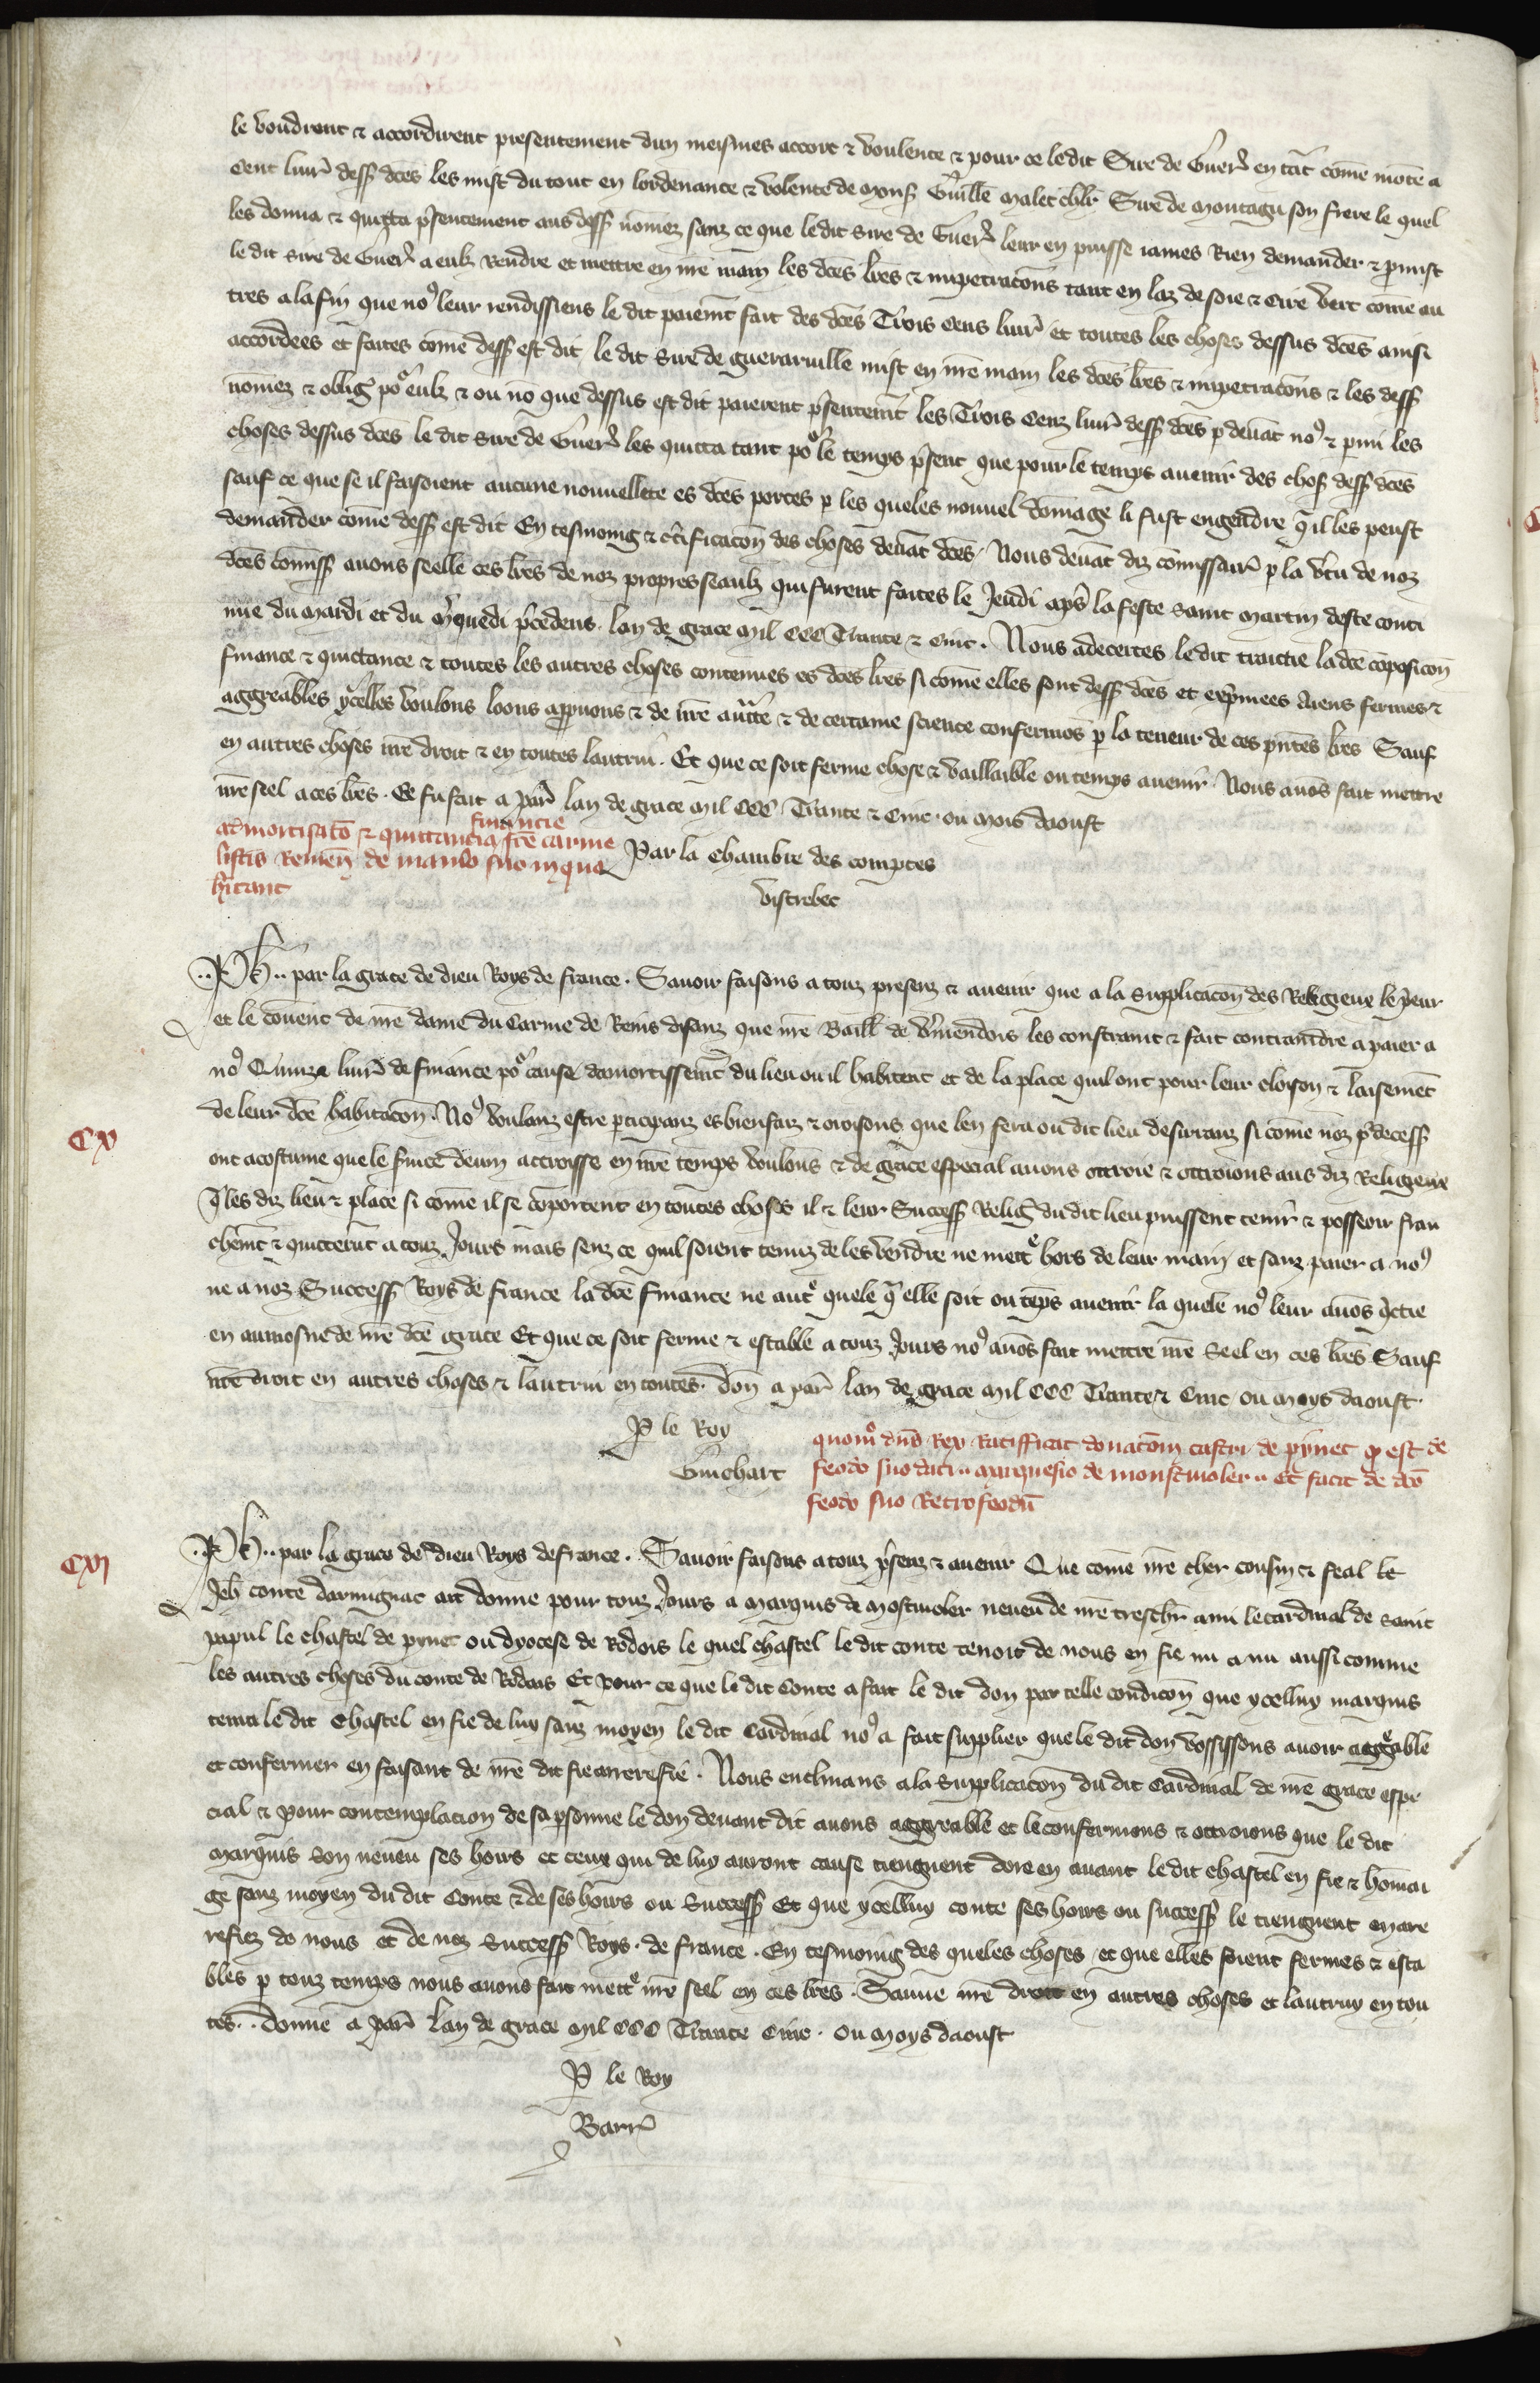 le voudrent & accordirent presentement dun meismes accort & voulente & pour ce le dit Sire de Guer̃ en tãt cõme mõte a
Cent liur̃ dess̃ dc̃es les mist du tout en lordenance & volente de mons̃ Guille Malet chlr̃ Sire de montagu son frere le quel
les donna & quitta p̃sentement aus dess̃ nõmez sanz ce que le dit sire de Guer̃ leur en puisse iames Rien demander & p̃mist
le dit sire de Guer̃ a eulz rendre et mettre en nr̃e main les dc̃es lr̃es & impetracõns tant en laz de soie & cire vert cõme au
tres a la fin que no⁹ leur rendissiens le dit paiem̃t fait des dc̃es Trois cens liur̃ et toutes les choses dessus dc̃es ainsi
accordees et faites cõme dess̃ est dit le dit sire de guerarville mist en nr̃e main les dc̃es lr̃es & impetracõns & les dess̃
nõmez & oblig̃ poᵒ eulz & ou nõ que dessus est dit paierent p̃sentem̃t les Trois Cenz liur̃ dess̃ dc̃es p deuãt no⁹ & p mi les
choses dessus dc̃es le dit sire de Guer̃ les quitta tant poᵒ le temps p̃sent que pour le temps auenir des chos̃ dess̃ dc̃es
sauf ce que se il faisoient aucune nouuellete es dc̃es portes p les queles nouuel dõmage li fust engendre q̃ il les peust
demander cõme dess̃ est dit En tesmoing & c̃tificacõn des choses deuãt dc̃es. Nous deuãt diz cõmissair̃ p la ṽtu de noz
dc̃es cõmiss̃ auons seelle ces lr̃es de noz propres seaulz qui furent faites le Jeudi ap̃s la feste saint martin deste conti
nue du mardi et du m̃quedi p̃cedens. lan de grace mil CCC Trante & Cinc. Nous adecertes le dit traictie la dc̃e cõposicõn
finance & quictance & toutes les autres choses contenues es dc̃es lr̃es si cõme elles sont dess̃ dc̃es et exp̃mees Aiens fermes &
aggreables ycelles voulons loons app̃uons & de nr̃e auct̃te & de certaine science confermõs p la teneur de ces p̃ntes lr̃es Sauf
en autres choses nr̃e droit & en toutes lautrui. Et que ce soit ferme chose & vaillaible ou temps auenir. Nous auõs fait mettre
nr̃e seel a ces lr̃es. Ce fu fait a Par̃ lan de grace mil CCC Trante & Cinc. ou mois daoust
admortisatõ & quittancia financie fr̃e carme
listis Remeñ de manso suo in quo
h̃itant
Par la Chambre des comptes
Vistrebec
CX
..Ph̃.. par la grace de dieu Roys de france. Sauoir faisons a touz presenz & auenir que a la supplicacon des Religieux le p̃eur
et le couent de nr̃e dame du Carme de Reins disanz que nr̃e Baill̃ de ṽmendois les constraint & fait contraindre a paier a
no⁹ Quinze liur̃ de finance poᵒ cause damortissem̃t du lieu ou il habitent et de la place quil ont pour leur cloison & laisemẽt
de leur dc̃e habitacõn. No⁹ voulanz estre pticipanz es bienfaiz & oroisons que len fera ou dit lieu desiranz si cõme noz p̃decess̃
ont acostume que le s̃uice deuin accroisse en nr̃e temps voulons & de grace especial auons ottroie & ottroions aus diz Religieux
q̃ les diz lieu & place si cõme il se comportent en toutes choses il & leur Success̃ Relig̃ du dit lieu puissent tenir & posseoir fran
chem̃t & quittem̃t a touz Jours mais senz ce quil soient tenuz de les vendre ne mettͤ hors de leur main et sanz paier a no⁹
ne a noz Success̃ Roys de france la dc̃e finance ne autͤ quele q̃ elle soit ou tẽps auenir la quele no⁹ leur auõs q̃ctie
en aumosne de nr̃e dc̃e grace Et que ce soit ferme & estable a touz Jours no⁹ auõs fait mettre nr̃e Seel en ces lr̃es Sauf
nr̃e droit en autres choses & lautrui en toutes. don̄ a par̃ lan de grace mil CCC Trante & Cinc ou moys daoust.
P le Roy
Guichart
quomᵒ dn̄s Rex Ratifficat donatõem castri de pynet q̃ est de
feodo suo dato.. marquesio de monstmoler.. Et facit de dc̃o
feodo suo Retrofeodũ
CXI
..Ph̃.. par la grace de dieu Roys de france. Sauoir faisons a touz p̃senz & auenir Que cõme nr̃e cher cousin & feal le
Jeh̃ conte darmignac ait donne pour touz Jours a marquis de mostmoler neueu de nr̃e treschr̃ ami le cardinal de saint
papul le chastel de pynet ou dyocese de Rodois le quel chastel le dit conte tenoit de nous en fie nu a nu aussi comme
les autres choses du conte de Rodais Et pour ce que li dit Conte a fait le dit don par telle condicõn que ycelluy marquis
tenra le dit chastel en fie de luy sanz moyen le dit Cardinal no⁹ a fait supplier que le dit don vossissons auoir aggͤable
et confermer en faisant de nr̃e dit fie arrerefie. Nous enclinans a la supplicacõn du dit Cardinal de nr̃e grace espe
cial & pour contemplacion de sa psonne le don deuant dit auons aggreable et le confermons & ottroions que le dit
marquis son neueu ses hoirs et ceux qui de luy auront cause tiengnent dore en auant le dit chastel en fie & hõmai
ge sanz moyen du dit Conte & de ses hoirs ou Success̃ Et que ycelluy conte ses hoirs ou success̃ le tiengnent en are
refiez de nous et de noz Success̃ Roys. de france. En tesmoing des queles choses et que elles soient fermes & esta
bles p touz temps nous auons fait mettͤ nr̃e seel en ces lr̃es. Sauue nr̃e droit en autres choses et lautruy en tou
tes.. donne a Par̃ Lan de grace mil CCC Trante Cinc. ou moys daoust
P le Roy
Barr̃